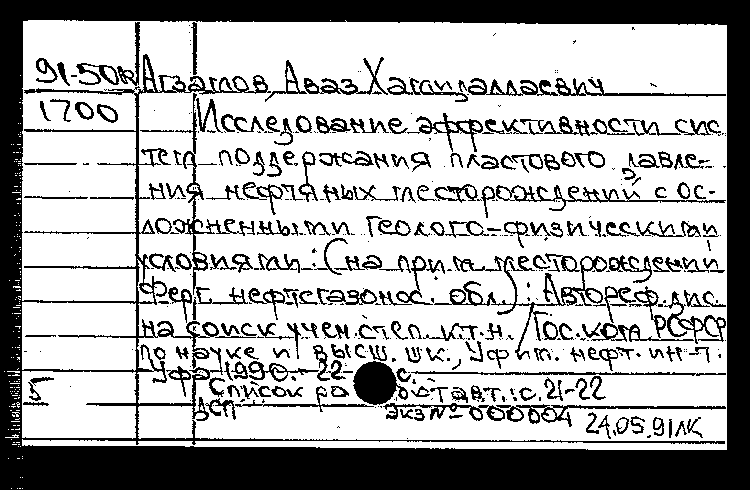 91-50к Агзамов, Аваз Хамидаллаевич
1700 Исследование эффективности сис
тем поддержания пластового давле-
ния нефтяных месторождений с ос-
ложненными геолого-физическими
условиями: (на прим. месторождений
Ферг. нефтегазонос. обл.): Автореф. дис.
на соиск. учен. степ. к.т.н. / Гос. ком. РСФСР
по науке и высш. шк., Уфим. нефт. ин-т.
Уфа 1990. - 22 с.
5 Список работ авт.: с. 21-22
ДСП Экз № 000004 24.05.91